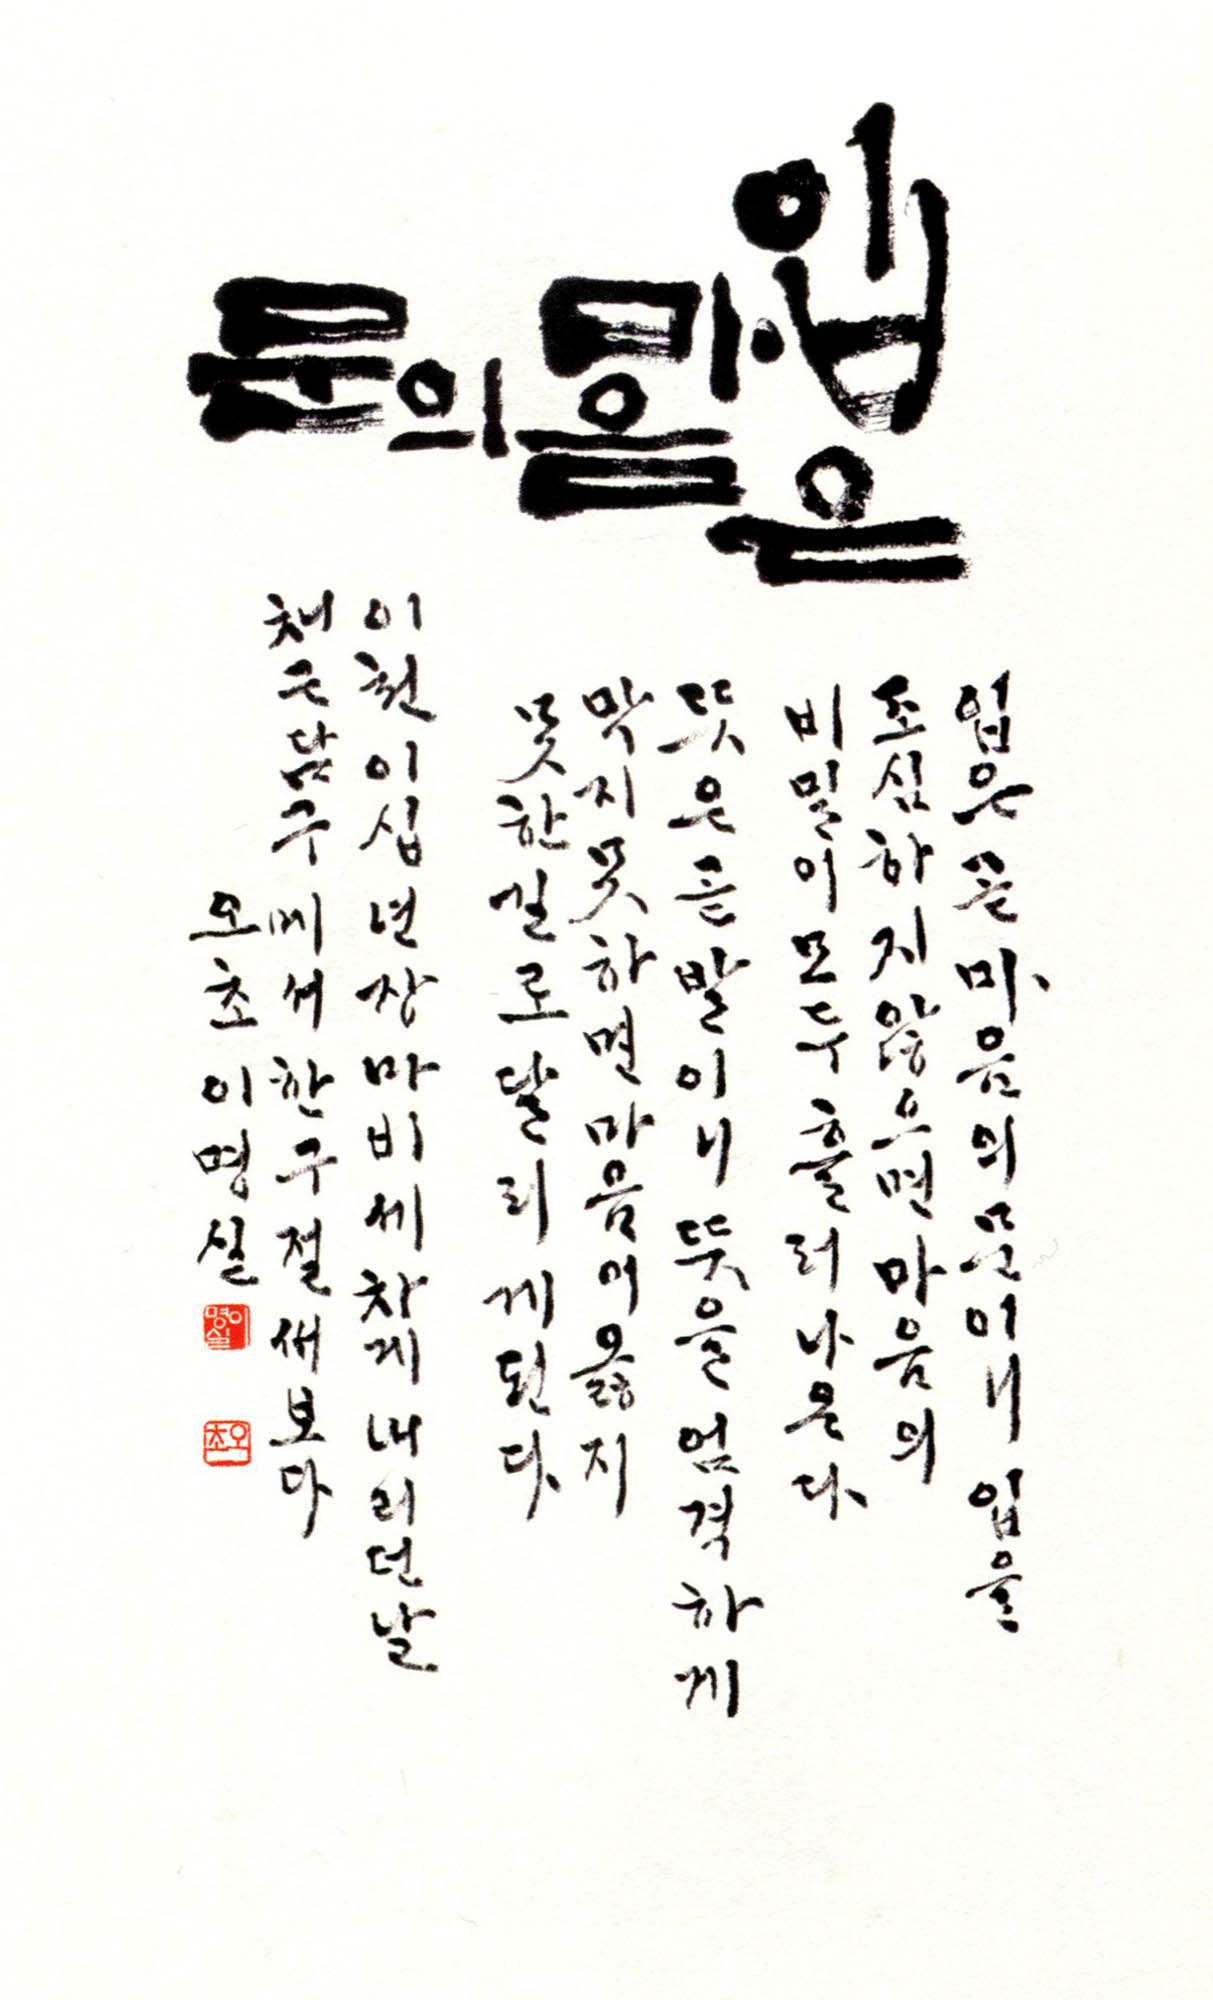 입은 마음의 문
입은 곧 마음의 문이니 입을
조심하지 않으면 마음의
비밀이 모두 흘러나온다
뜻은 곧 발이니 뜻을 엄격하게
막지 못하면 마음이 옳지
못한 길로 달리게 된다
이천이십년 장마비 세차게 내리던 날
채근담 구에서 한 구절 새보다
오초 이명실
이명실
오초